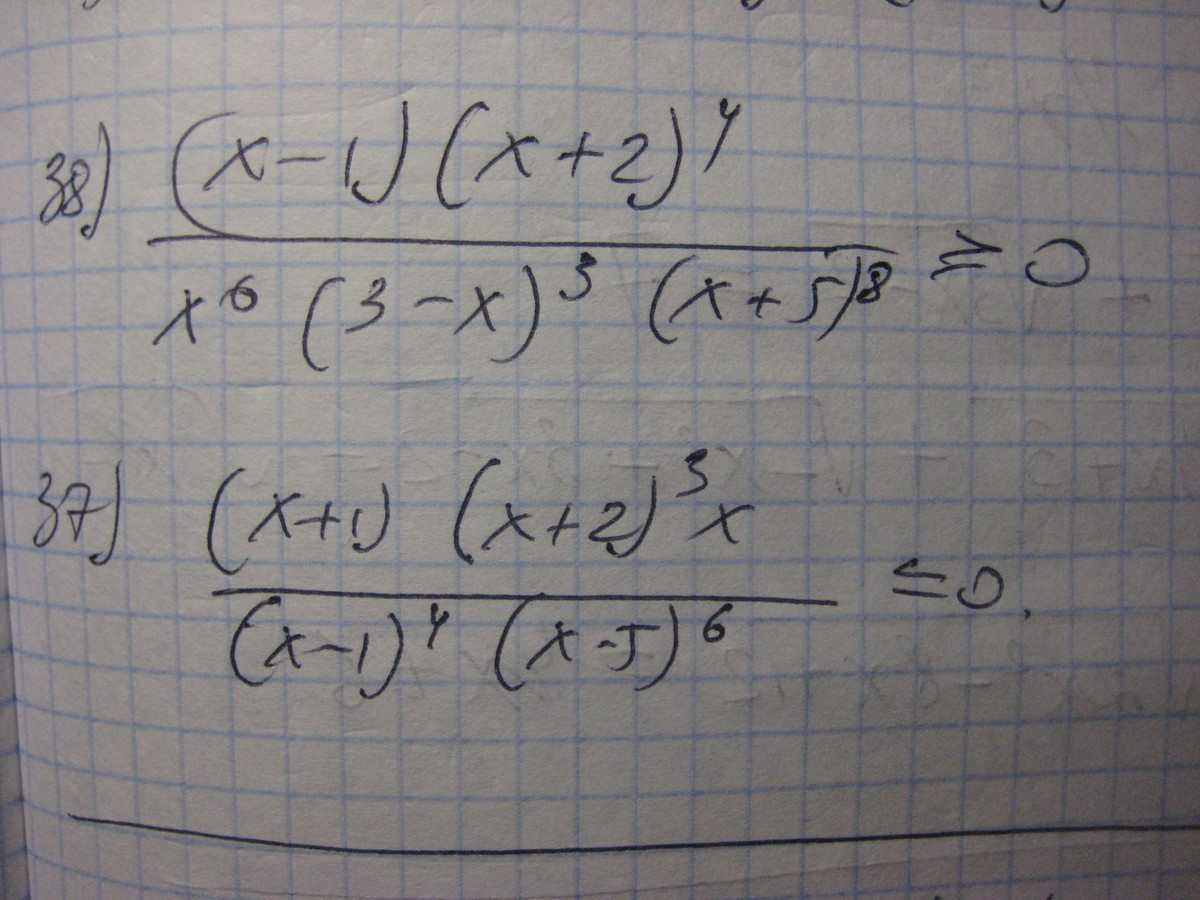 38) (x-1)(x+2)^4
x^6 (3-x)^3 (x+5)^8 ≥ 0
37) (x+1) (x+2)^3 x
(x-1)^4 (x-5)^6 ≤ 0.